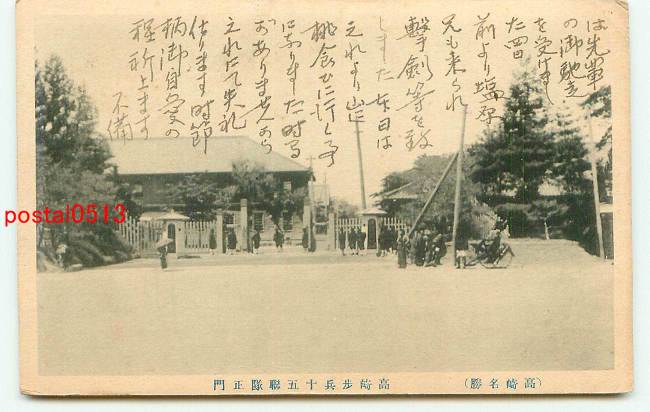 は先輩
の御馳走
を受けまし
た四日
前より塩原
兄も来られ
撃剣等を致
しました本日は
之れより山に
桃念ひに行く
になりました時る
おありませんから
之れにて失礼
仕ります時節
柄御自愛の
程祈上ます
不備
postal0513
高崎歩兵十五聯隊正門
（高崎名勝）